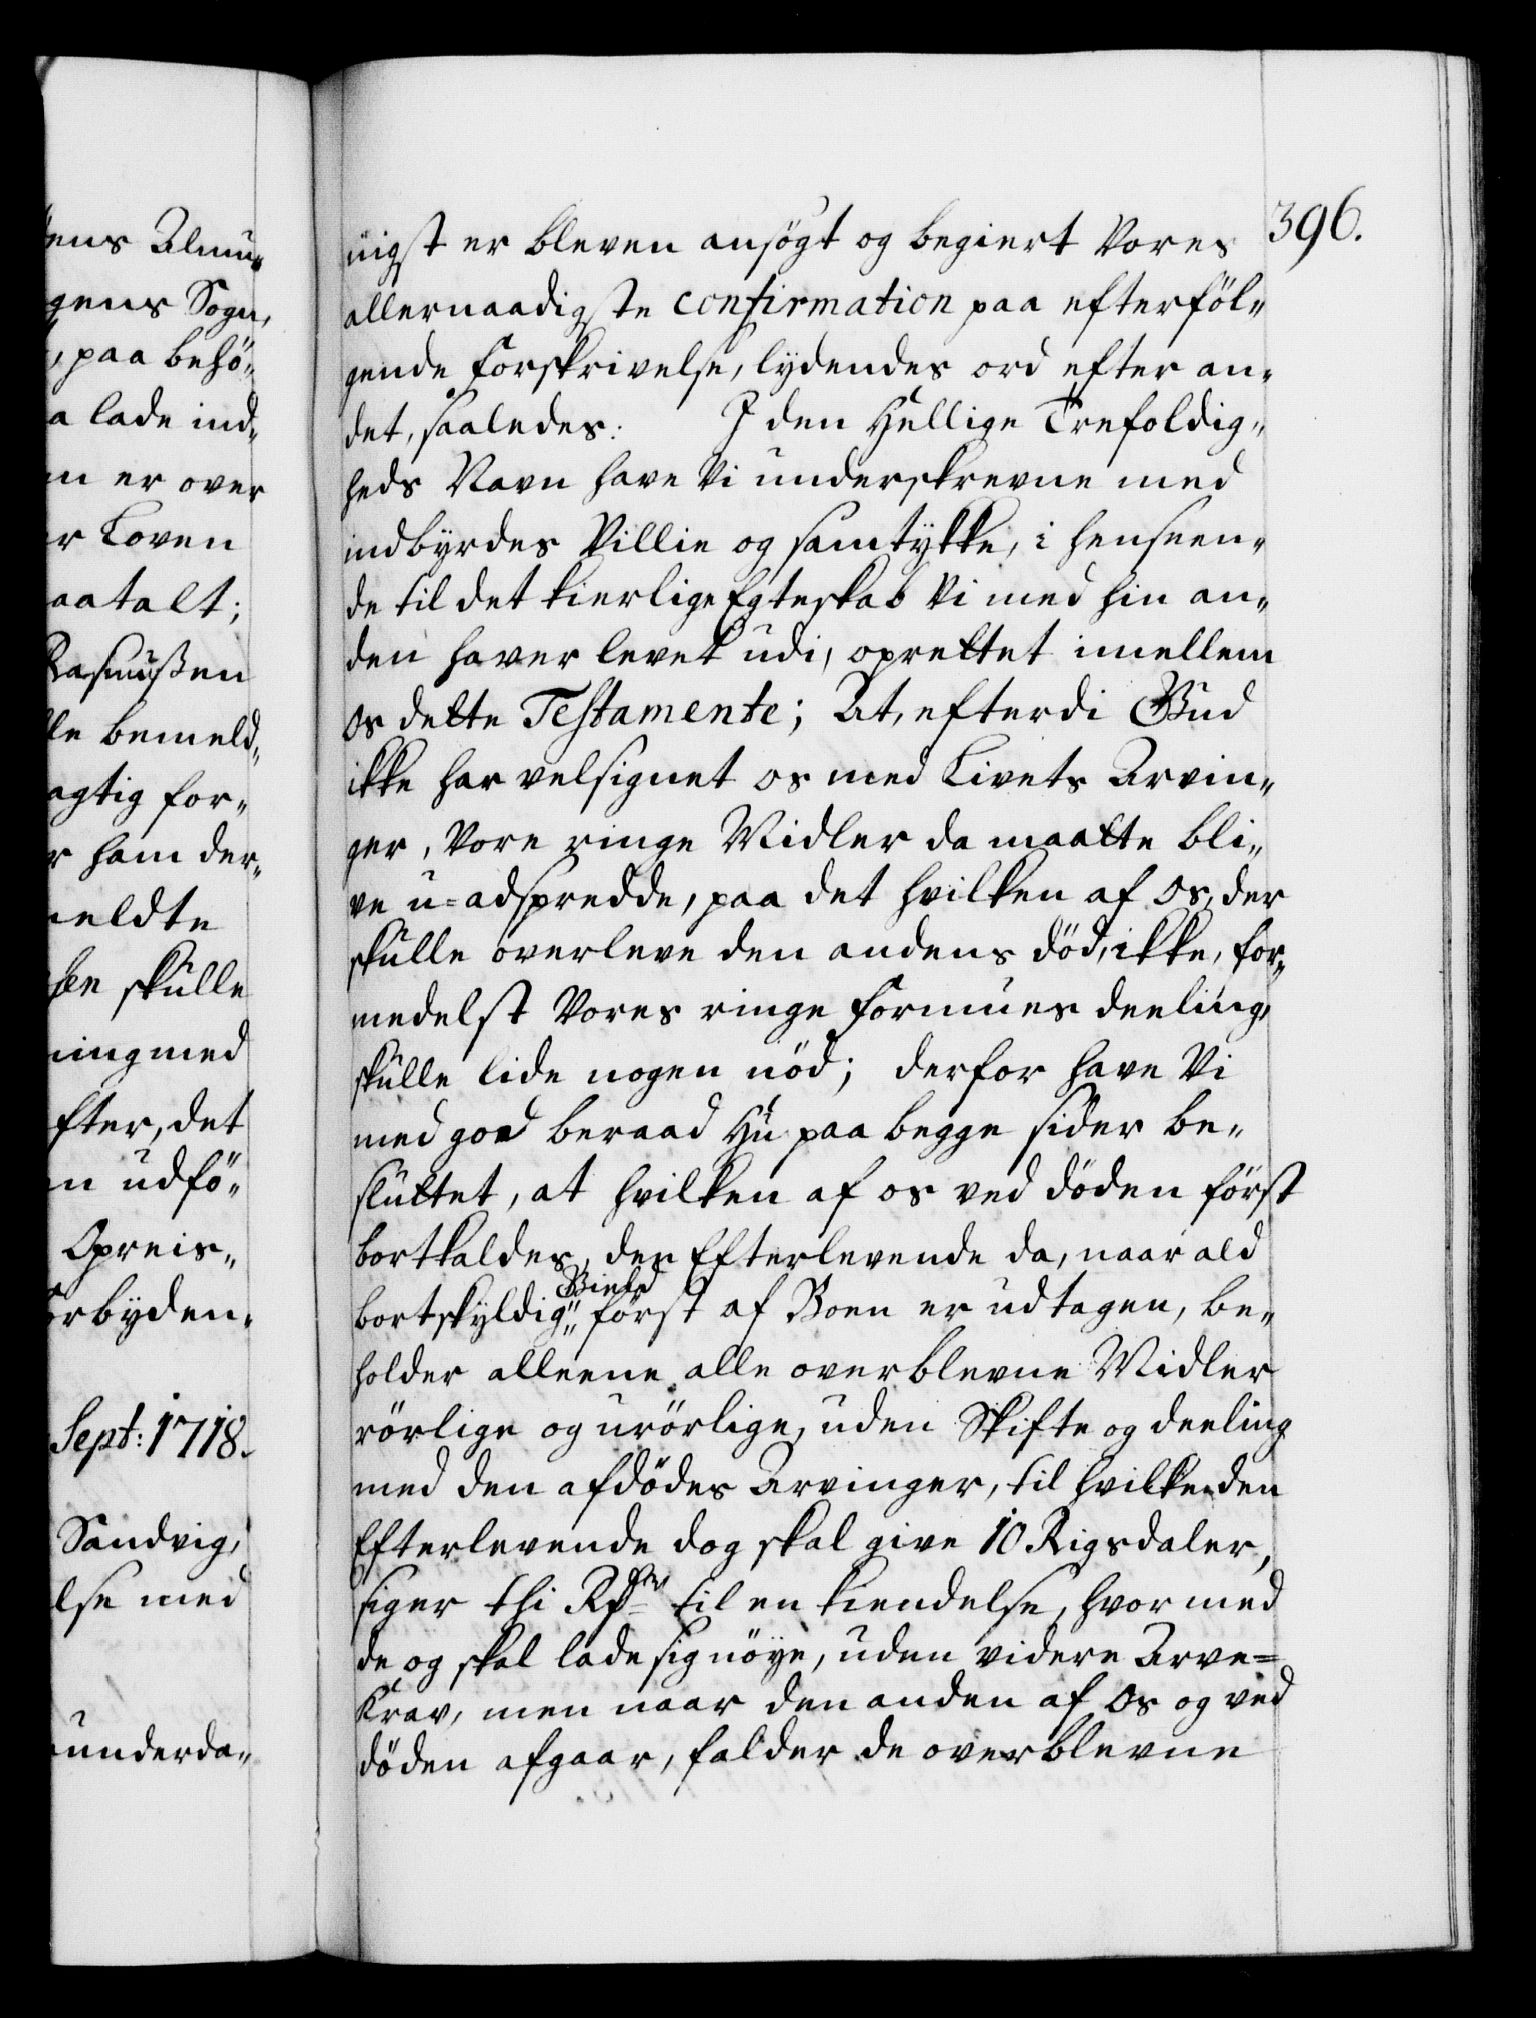 ens Almu„
gens Sogn,
, paa behö„
a lade ind„
n er over
r Loven
aatalt;
Rasmußen
le bemeld„
agtig for„
r ham der„
eldte
sen skulle
ning med
fter, det
n udfö„
Opreis„
rbyden„
Sept: 1718.
Sandvig,
lse med
underda„
396.
nigst er bleven ansögt og begiert Vores
allernaadigste confirmation paa efterföl„
gende Forskrivelse, lydendes ord efter an„
det, saaledes: J den Hellige Trefoldig„
heds Navn have Vi underskrevne med
indbyrdes Villie og samtykke, i henseen„
de til det kierlige Egteskab Vi med hin an„
den haver levet udi, oprettet imellem
os dette Testamente; At, efterdi Gud
ikke har velsignet os med Livets Arvin„
ger, Vore ringe Midler da maatte bli„
ve u=adspredde, paa det hvilken af os, der
skulle overleve den andens död, ikke, for„
medelst Vores ringe Formues deeling,
skulle lide nogen nöd; derfor have Vi
med god beraad Hu paa begge sider be„
sluttet, at hvilken af os ved döden först
bortkaldes, den Efterlevende da, naar ald
bortskyldig„ Gield först af Boen er udtagen, be„
holder alleene alle overblevne Midler
rörlige og urörlige, uden Skifte og deeling
med den afdödes Arvinger, til hvilke den
Efterlevende dog skal give 10 Rigsdaler,
siger thi Rdr til en kiendelse, hvormed
de og skal lade sig nöye, uden videre Arve=
Krav, men naar den anden af os og ved
döden afgaar, falder de overblevne